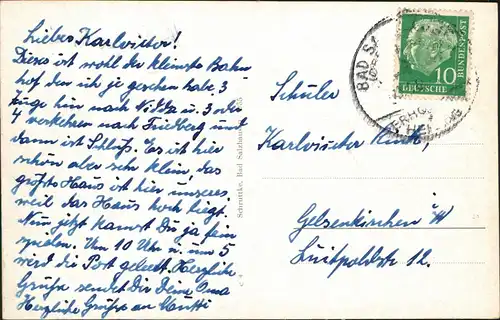 Lieber Karlvictor!
Dieses ist wohl der kleinste Bahn
hof den ich je gesehen habe 3
Züge hin nach Nidda u. 3 oder
4 verkehren nach Friedberg und
dann ist Schluß. Es ist hier
schön aber sehr klein, das
größte Haus ist hier unseres,
weil das Haus hoch liegt.
Nun jetzt kannst Du ja fein
spielen. Um 10 Uhr u. um 5
wird die Post geleert. Herzliche
Grüße sendet Dir Deine Oma
Herzliche Grüße an Mutti
Schrettke, Bad Salzhausen
BAD SA
DEUTSCHE
BUNDESPOST
10
Schüler
Karlvictor
Gelsenkirchen i/W
Luitpoldstr 12.